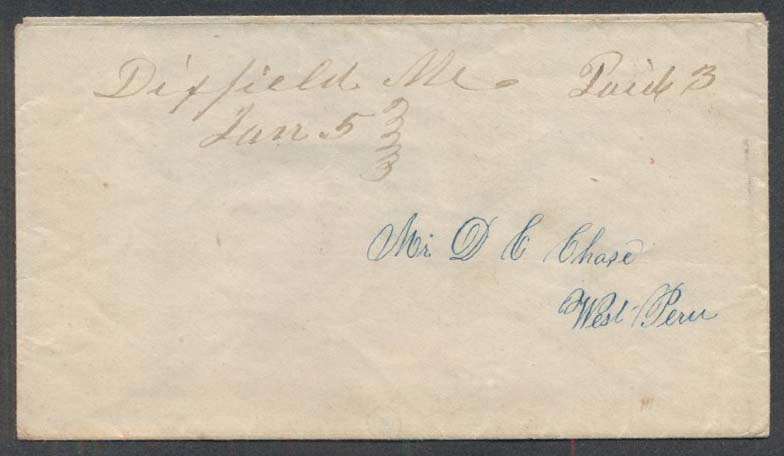 Dixfield Me. Paid 3
Jan 5
Mr. D C Chase
West Peru